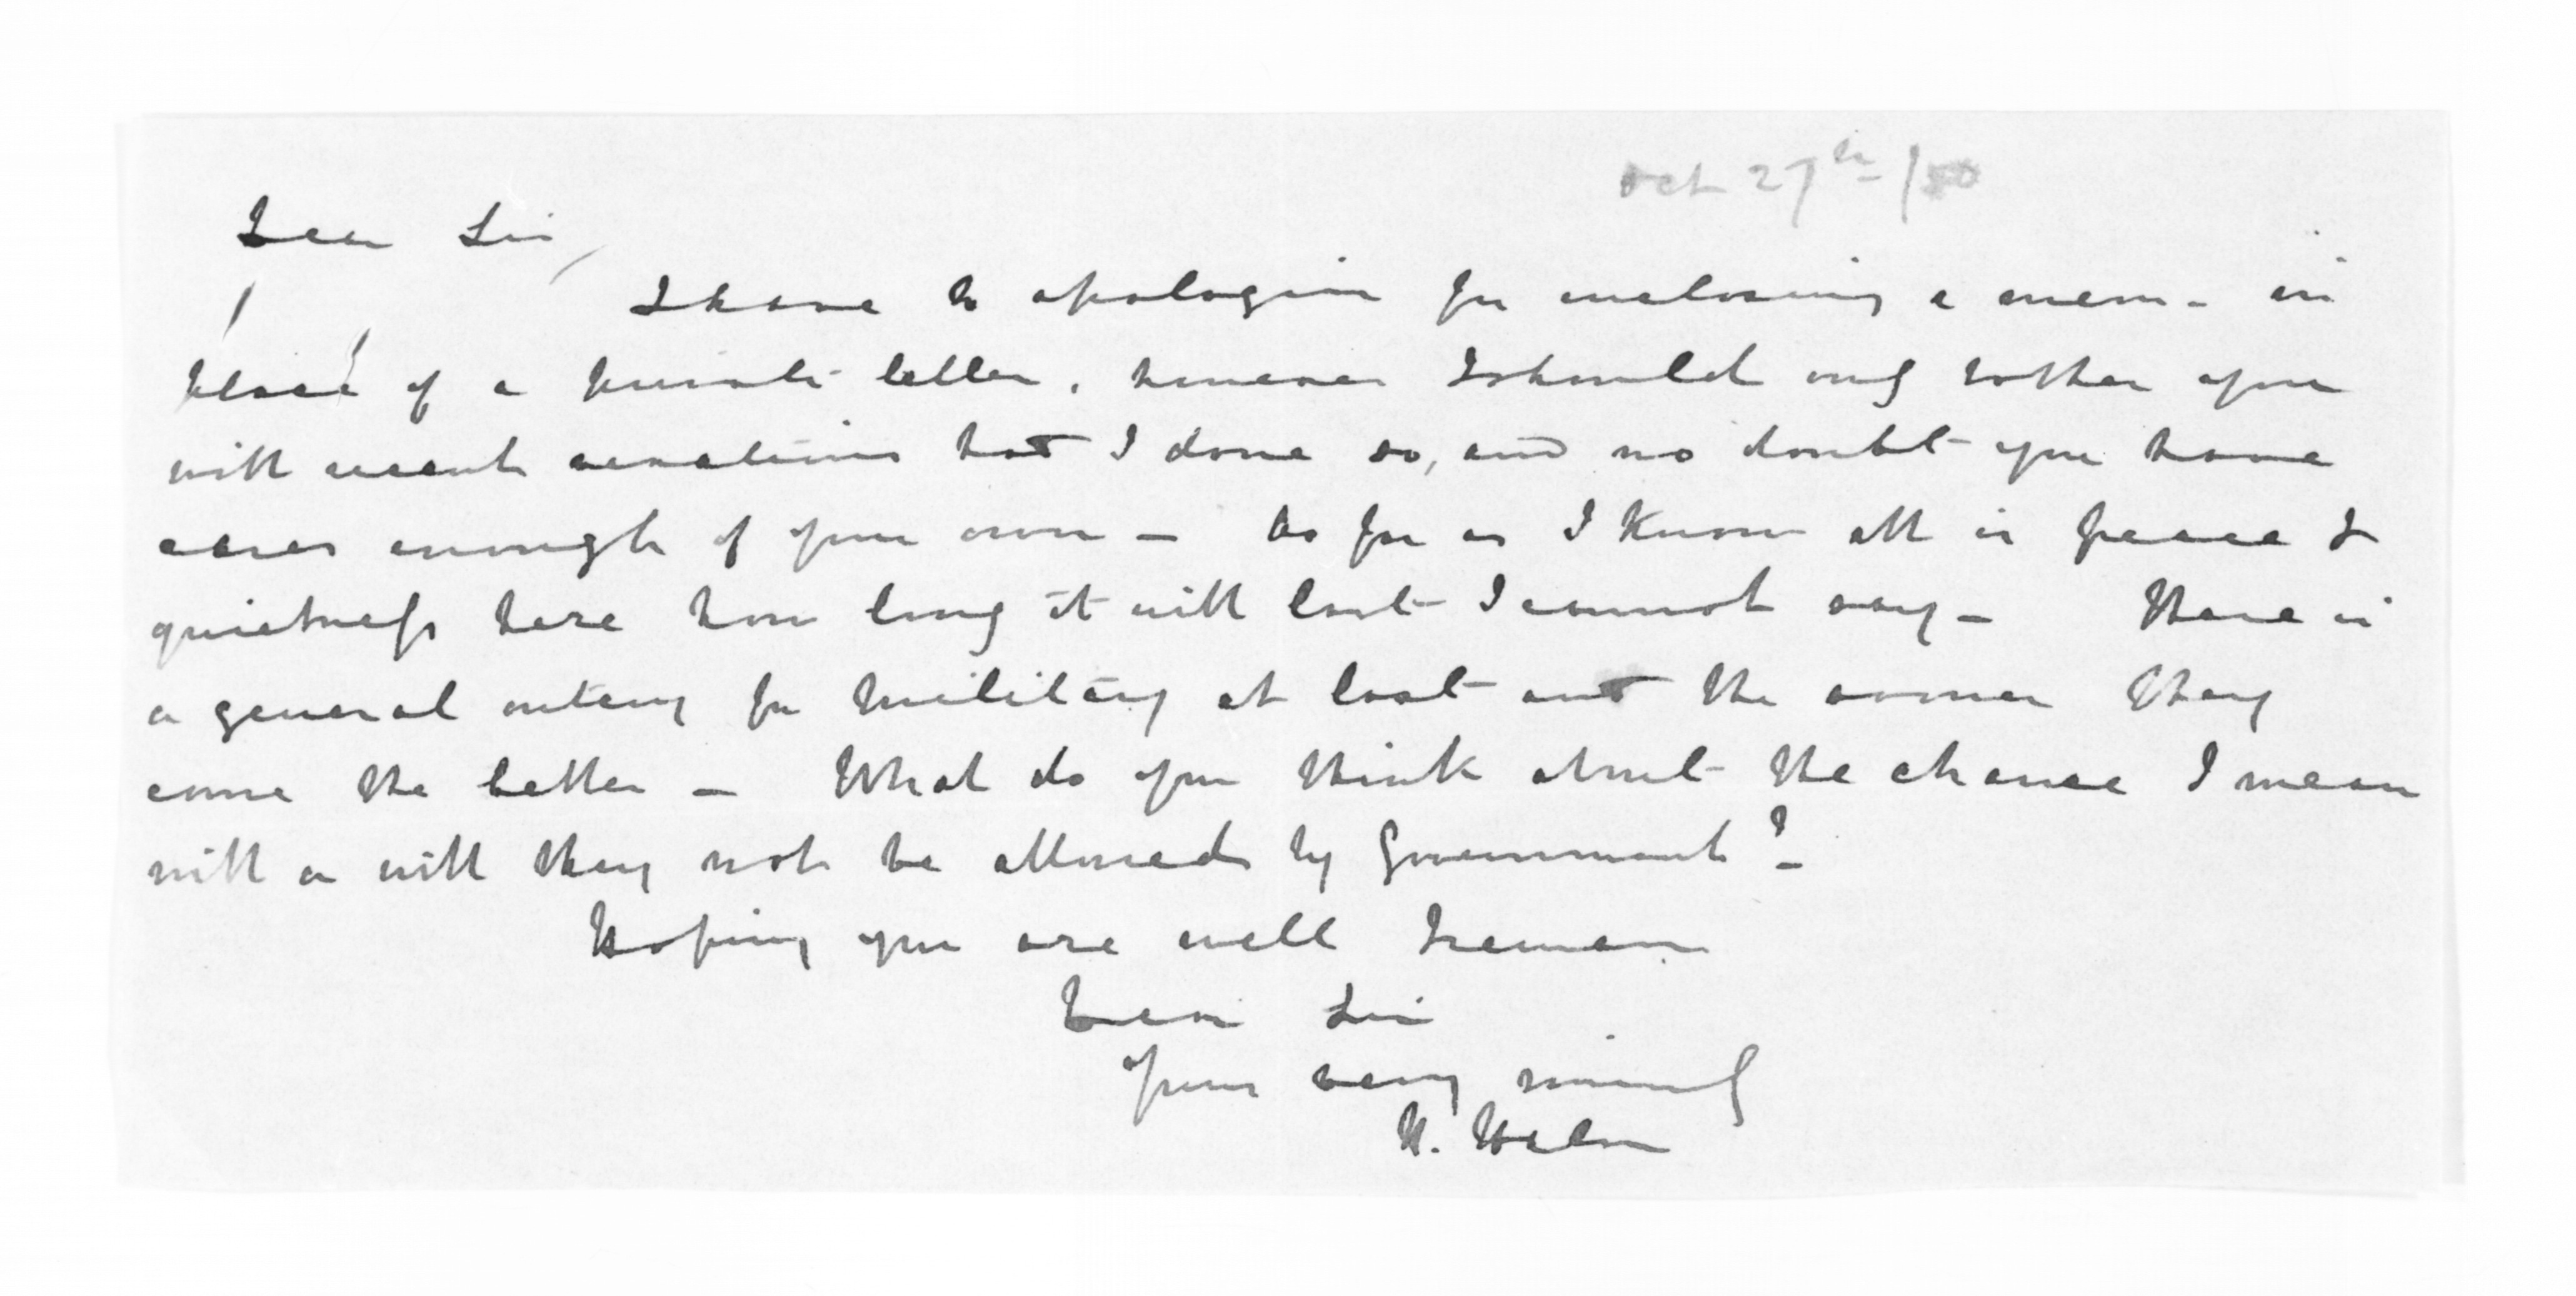 Oct 27th /50
Dear Sir,
I have to apologise for enclosing a mem - in
place of a private letter, however I should only bother you
with recent vexations had I done so, and no doubt you have
cares enough of your own - As far as I know all is peace &
quietness here how long it will last I cannot say - There is
a general outcry for Military at last and the sooner they
come the better - What do you think about the chance I mean
will or will they not be allowed by Government? -
Hoping you are well I remain
Dear Sir
Yours very sincerely
H.